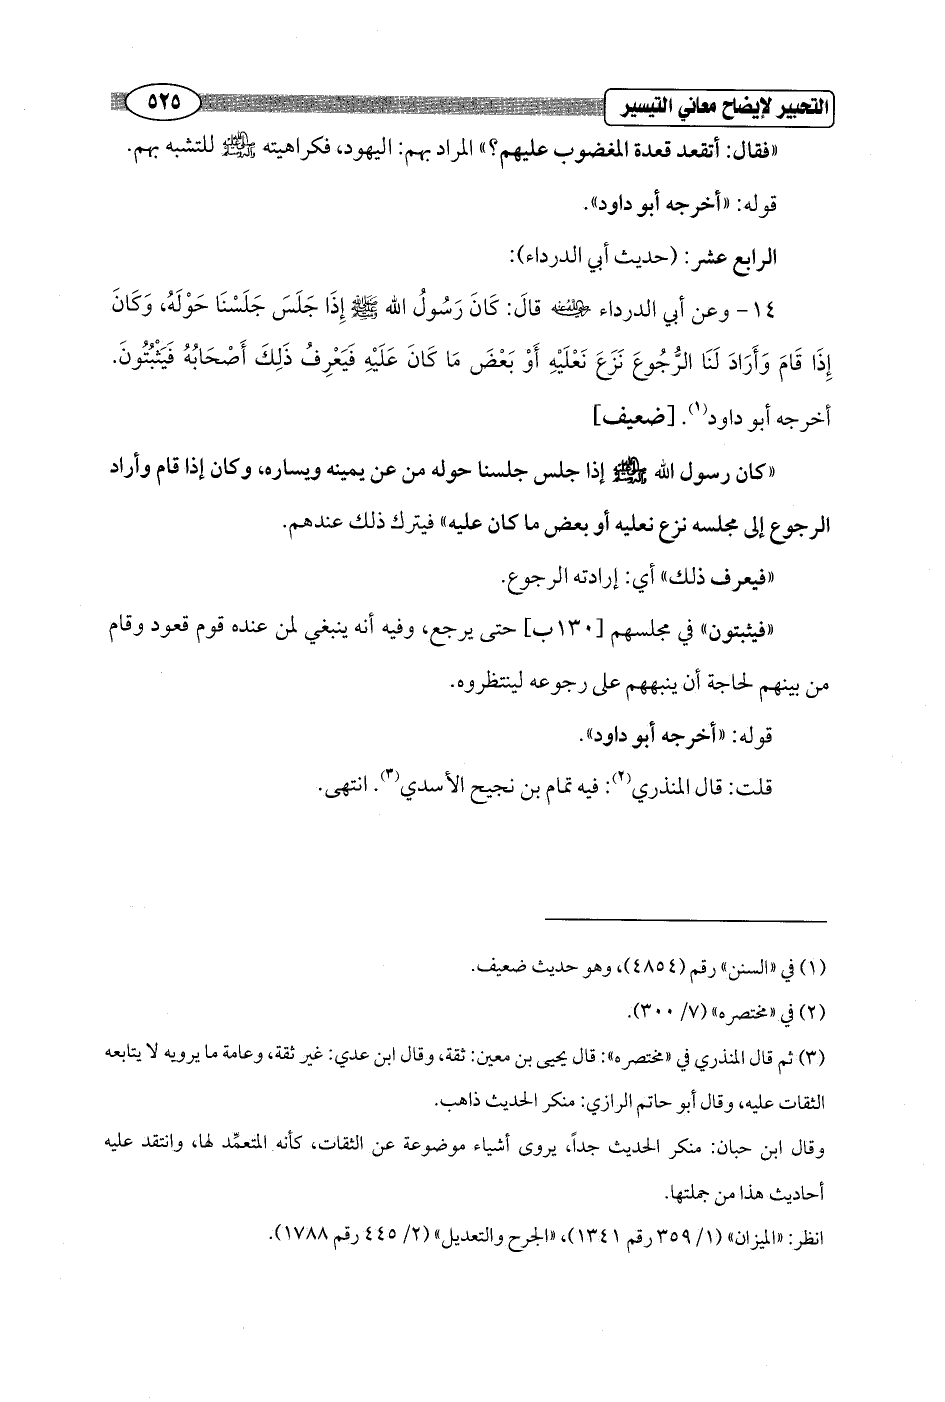 التحبير لإيضاح معاني التيسير ٥٢٥
«فقال: أتقعد قعدة المغضوب عليهم؟» المراد بهم: اليهود، فكراهيته ﷺ للتشبه بهم.
قوله: «أخرجه أبو داود».
الرابع عشر: (حديث أبي الدرداء):
١٤- وعن أبي الدرداء رضي الله عنه قالَ: كَانَ رَسُولُ الله ﷺ إِذَا جَلَسَ جَلَسْنَا حَوْلَهُ، وَكَانَ
إِذَا قَامَ وَأَرَادَ لَنَا الرُّجُوعَ نَزَعَ نَعْلَيْهِ أَوْ بَعْضَ مَا كَانَ عَلَيْهِ فَيَعْرِفُ ذَلِكَ أَصْحَابُهُ فَيَثْبُتُونَ.
أخرجه أبو داود(١). [ضعيف]
«كان رسول الله ﷺ إذا جلس جلسنا حوله من عن يمينه ويساره، وكان إذا قام وأراد
الرجوع إلى مجلسه نزع نعليه أو بعض ما كان عليه» فيترك ذلك عندهم.
«فيعرف ذلك» أي: إرادته الرجوع.
«فيثبتون» في مجلسهم [١٣٠ب] حتى يرجع، وفيه أنه ينبغي لمن عنده قوم قعود وقام
من بينهم لحاجة أن ينبههم على رجوعه لينتظروه.
قوله: «أخرجه أبو داود».
قلت: قال المنذري(٢): فيه تمام بن نجيح الأسدي(٣). انتهى.
(١) في «السنن» رقم (٤٨٥٤)، وهو حديث ضعيف.
(٢) في «مختصره» (٧/ ٣٠٠).
(٣) ثم قال المنذري في «مختصره»: قال يحيى بن معين: ثقة، وقال ابن عدي: غير ثقة، وعامة ما يرويه لا يتابعه
الثقات عليه، وقال أبو حاتم الرازي: منكر الحديث ذاهب.
وقال ابن حبان: منكر الحديث جداً، يروى أشياء موضوعة عن الثقات، كأنه المتعمِّد لها، وانتقد عليه
أحاديث هذا من جملتها.
انظر: «الميزان» (١/ ٣٥٩ رقم ١٣٤١)، «الجرح والتعديل» (٢/ ٤٤٥ رقم ١٧٨٨).